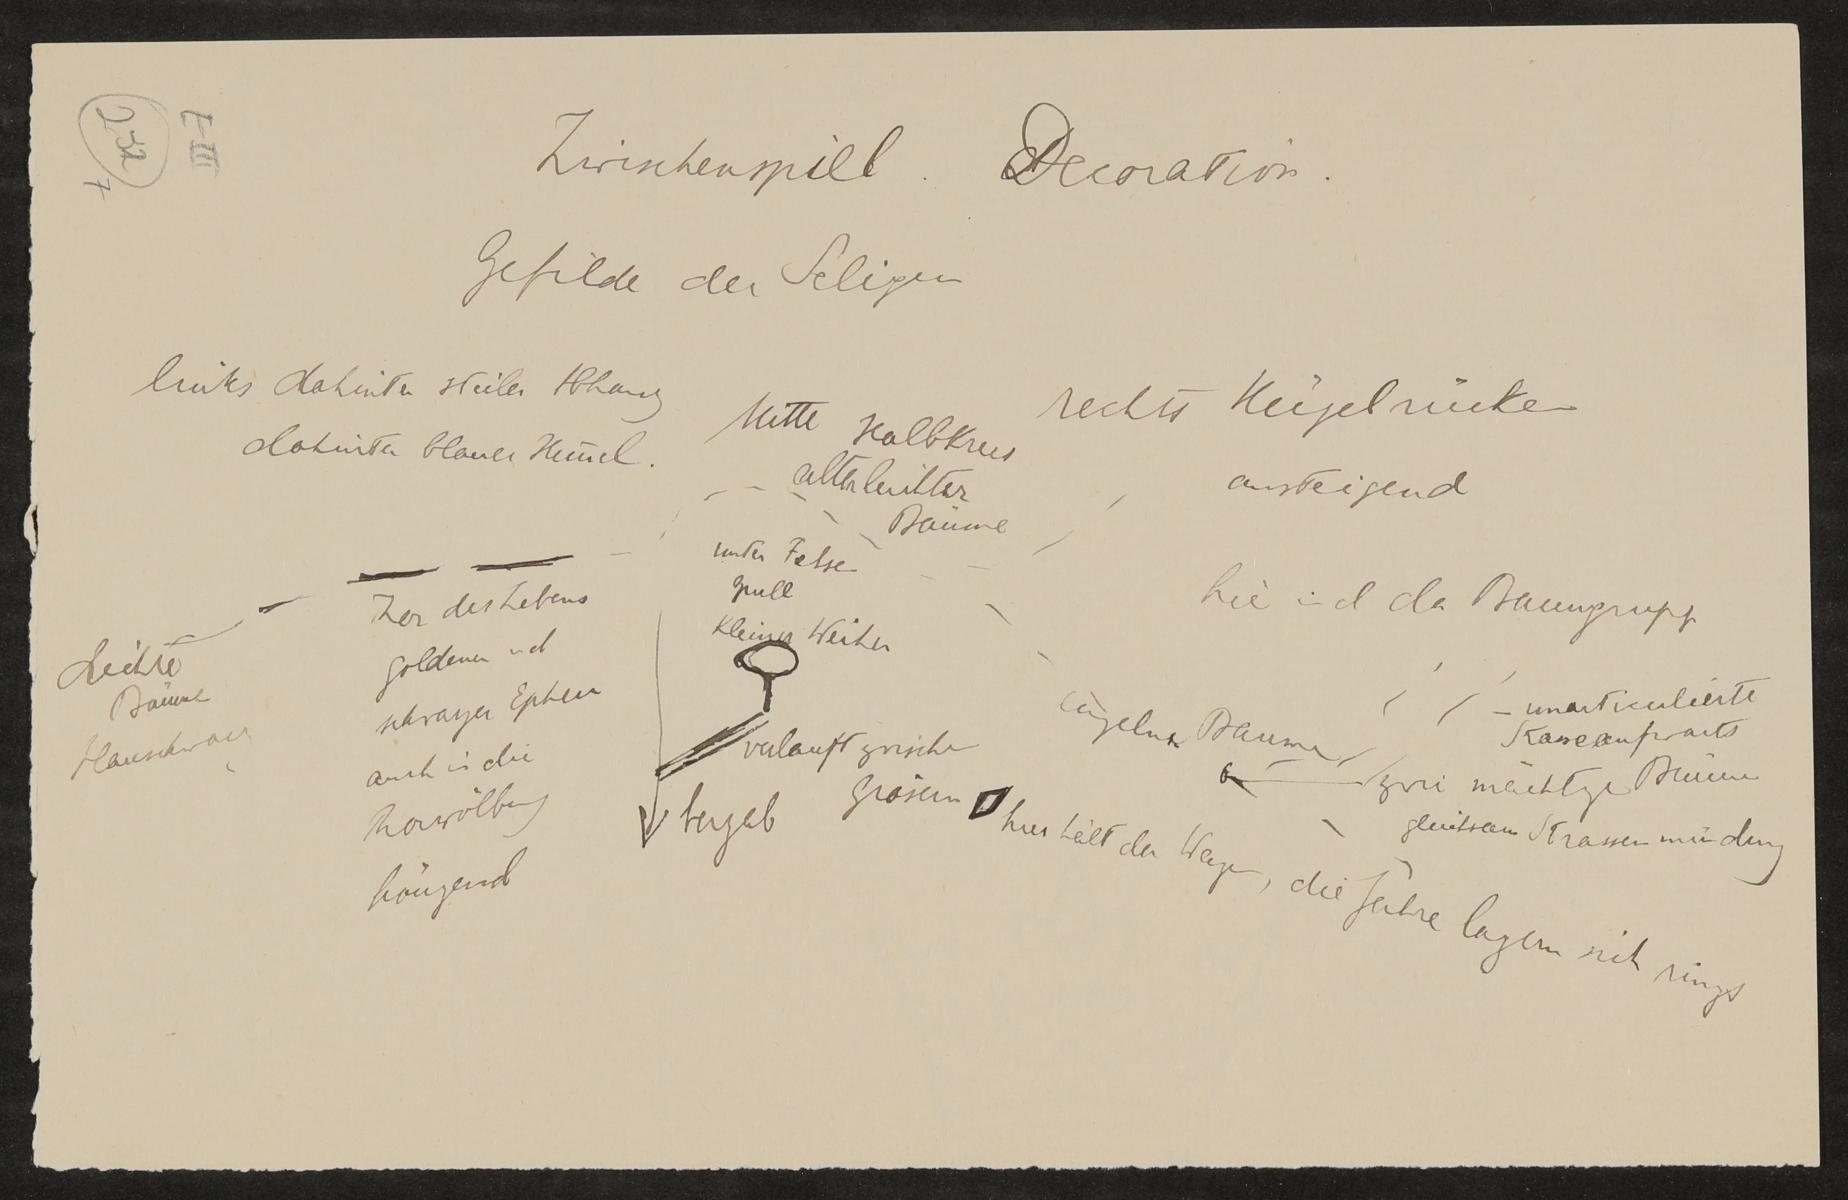 E III
232
7
Zwischenspiel. Decoration.
Gefilde der Seligen
links dahinter steiler Abhang
dahinter blauer Himel.
Mitte Halbkreis
Bäume
unter Felsen
Quell
kleiner Weiher
rechts Hügelrücken
ansteigend
hie und da Baumgruppe
Leichte
Bäume
Thor des Lebens
goldener und
schwarzer Epheu
auch in die
Thorwölbung
hängend
verlauft zwischen
Gräsern
bergab
einzelne Bäume
unarticulierte
aufwarts
zwei mächtige Bäume
gleichsam Strassenmündung
hier hält der Wagen, die Jahre lagern sich rings